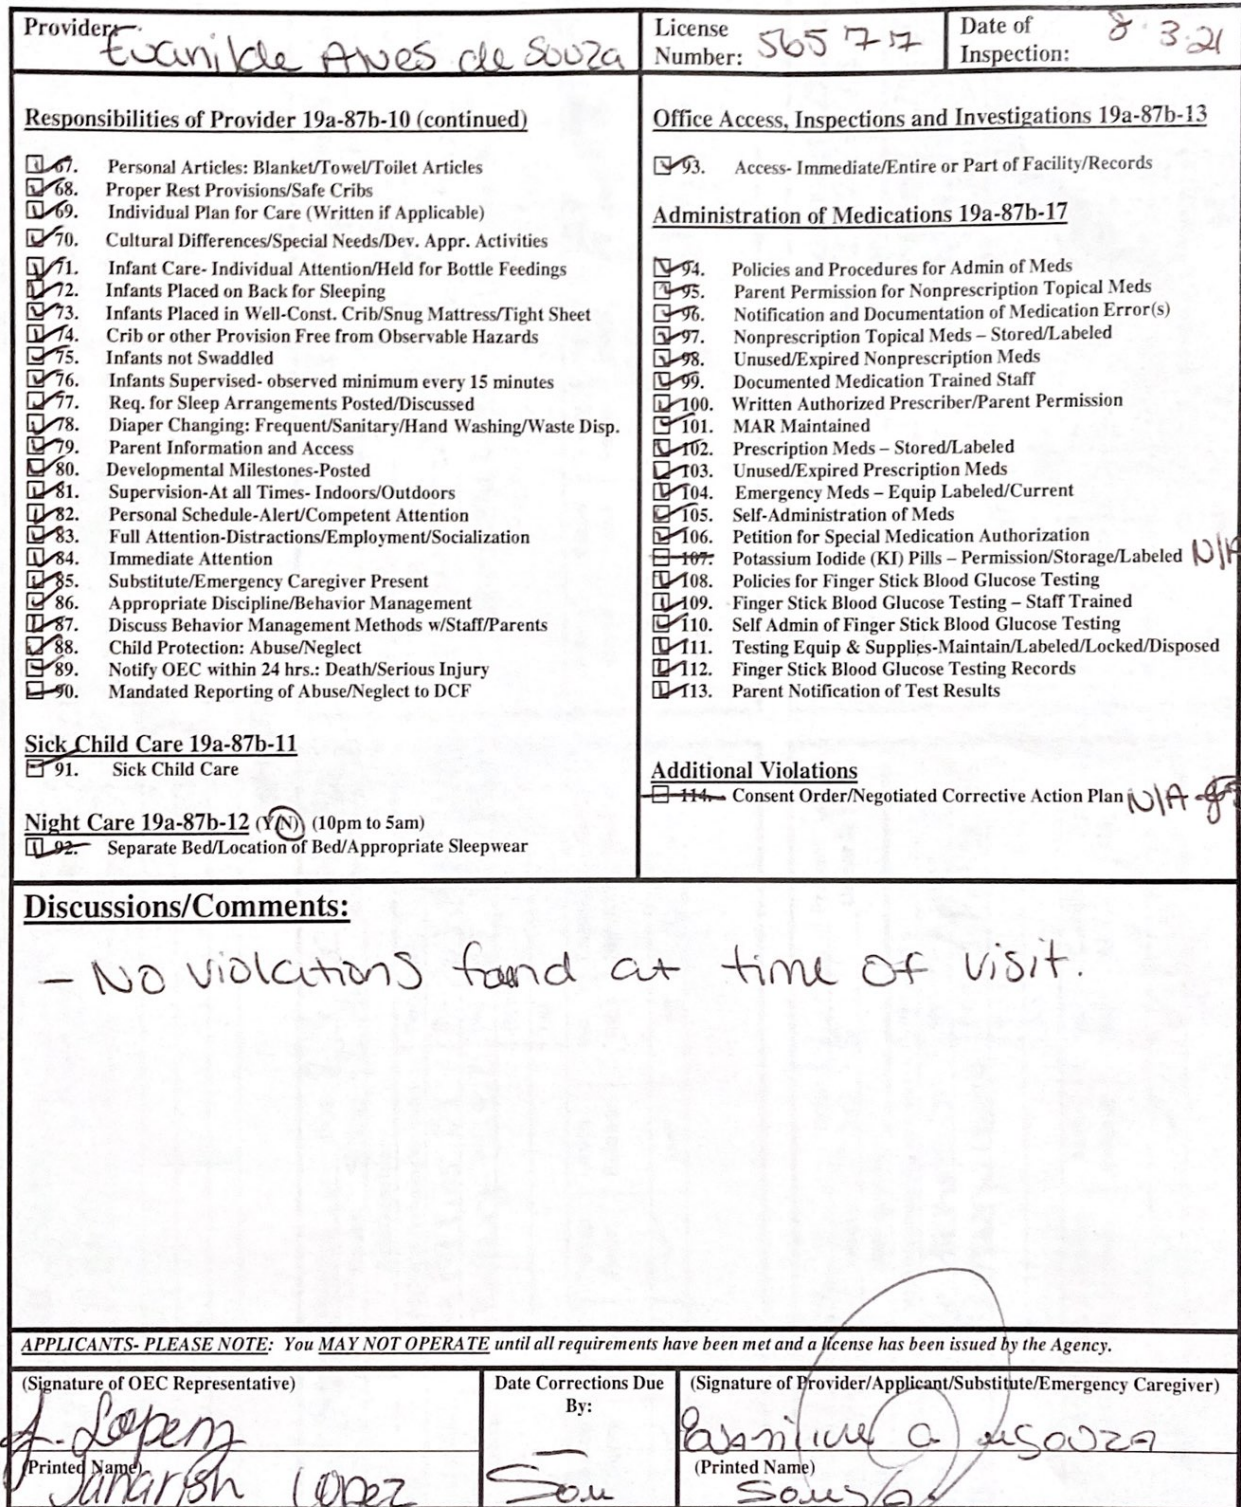 Provider: Evanilde Alves de Souza
License Number: 56577
Date of Inspection: 8.3.21
Responsibilities of Provider 19a-87b-10 (continued)
67. Personal Articles: Blanket/Towel/Toilet Articles
68. Proper Rest Provisions/Safe Cribs
69. Individual Plan for Care (Written if Applicable)
70. Cultural Differences/Special Needs/Dev. Appr. Activities
71. Infant Care- Individual Attention/Held for Bottle Feedings
72. Infants Placed on Back for Sleeping
73. Infants Placed in Well-Const. Crib/Snug Mattress/Tight Sheet
74. Crib or other Provision Free from Observable Hazards
75. Infants not Swaddled
76. Infants Supervised- observed minimum every 15 minutes
77. Req. for Sleep Arrangements Posted/Discussed
78. Diaper Changing: Frequent/Sanitary/Hand Washing/Waste Disp.
79. Parent Information and Access
80. Developmental Milestones-Posted
81. Supervision-At all Times- Indoors/Outdoors
82. Personal Schedule-Alert/Competent Attention
83. Full Attention-Distractions/Employment/Socialization
84. Immediate Attention
85. Substitute/Emergency Caregiver Present
86. Appropriate Discipline/Behavior Management
87. Discuss Behavior Management Methods w/Staff/Parents
88. Child Protection: Abuse/Neglect
89. Notify OEC within 24 hrs.: Death/Serious Injury
90. Mandated Reporting of Abuse/Neglect to DCF
Sick Child Care 19a-87b-11
91. Sick Child Care
Night Care 19a-87b-12 (Y/N) (10pm to 5am)
92. Separate Bed/Location of Bed/Appropriate Sleepwear
Office Access, Inspections and Investigations 19a-87b-13
93. Access- Immediate/Entire or Part of Facility/Records
Administration of Medications 19a-87b-17
94. Policies and Procedures for Admin of Meds
95. Parent Permission for Nonprescription Topical Meds
96. Notification and Documentation of Medication Error(s)
97. Nonprescription Topical Meds – Stored/Labeled
98. Unused/Expired Nonprescription Meds
99. Documented Medication Trained Staff
100. Written Authorized Prescriber/Parent Permission
101. MAR Maintained
102. Prescription Meds – Stored/Labeled
103. Unused/Expired Prescription Meds
104. Emergency Meds – Equip Labeled/Current
105. Self-Administration of Meds
106. Petition for Special Medication Authorization
107. Potassium Iodide (KI) Pills – Permission/Storage/Labeled N/A
108. Policies for Finger Stick Blood Glucose Testing
109. Finger Stick Blood Glucose Testing – Staff Trained
110. Self Admin of Finger Stick Blood Glucose Testing
111. Testing Equip & Supplies-Maintain/Labeled/Locked/Disposed
112. Finger Stick Blood Glucose Testing Records
113. Parent Notification of Test Results
Additional Violations
114. Consent Order/Negotiated Corrective Action Plan N/A
Discussions/Comments:
- No violations found at time of visit.
APPLICANTS- PLEASE NOTE: You MAY NOT OPERATE until all requirements have been met and a license has been issued by the Agency.
(Signature of OEC Representative)
J. Lopez
(Printed Name)
Lopez
Date Corrections Due
By:
(Signature of Provider/Applicant/Substitute/Emergency Caregiver)
(Printed Name)